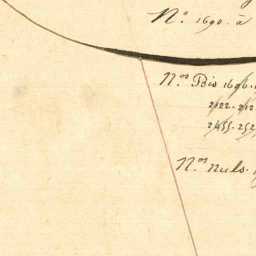 N.o 1690. à
N.os Bis 1696.
2122. 212
2455. 252
N.os Nuls.